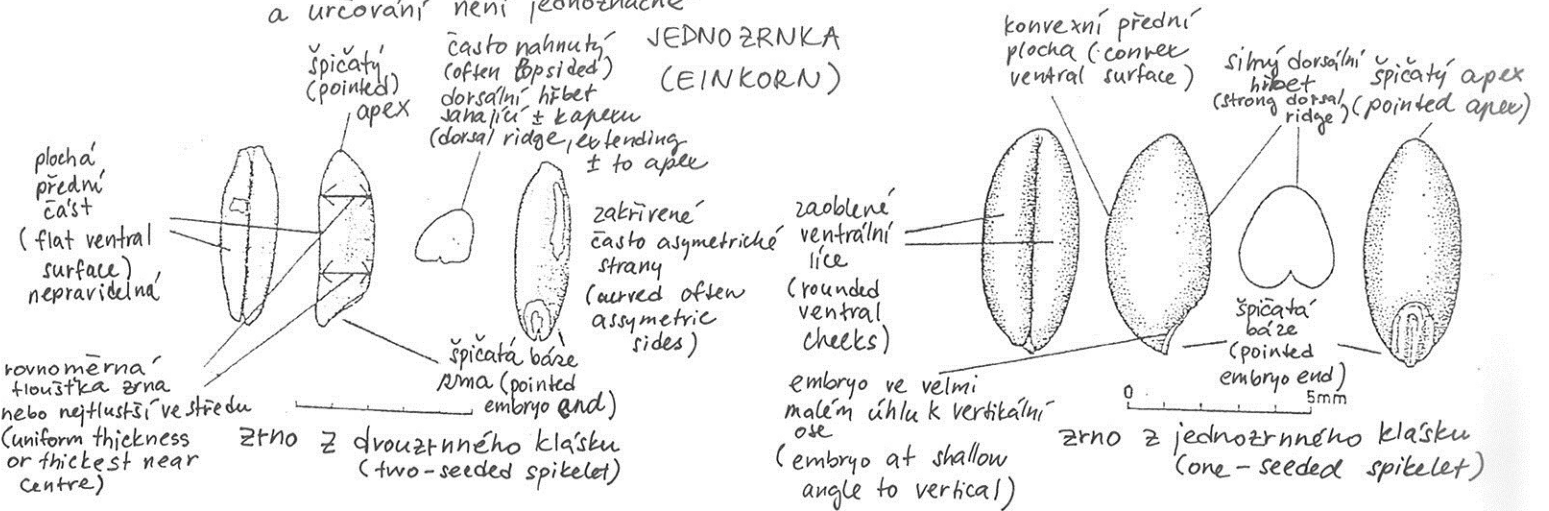 a určování není jednoznačné
JEDNOZRNKA
(EINKORN)
špičatý
(pointed)
apex
často nahnutý
(often lopsided)
dorsální hřbet
sahající ± k apexu
(dorsal ridge, extending
± to apex
plochá
přední
část
(flat ventral
surface)
nepravidelná
zakřivené
často asymetrické
strany
(curved often
assymetric
sides)
rovnoměrná
tloušťka zrna
nebo nejtlustší ve středu
(uniform thickness
or thickest near
centre)
špičatá báze
zrna (pointed
embryo end)
zrno z dvouzrnného klásku
(two-seeded spikelet)
konvexní přední
plocha (convex
ventral surface)
silný dorsální
hřbet
(strong dorsal
ridge)
špičatý apex
(pointed apex)
zaoblené
ventrální
líce
(rounded
ventral
cheeks)
špičatá
báze
(pointed
embryo end)
embryo ve velmi
malém úhlu k vertikální
ose
(embryo at shallow
angle to vertical)
0 5mm
zrno z jednozrnného klásku
(one-seeded spikelet)